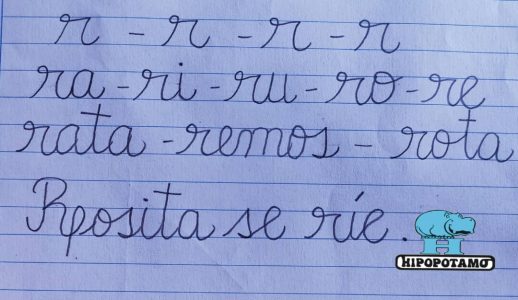 r - r - r - r
ra - ri - ru - ro - re
rata - remos - rota
Rposita se ríe.
H
HIPOPOTAMO